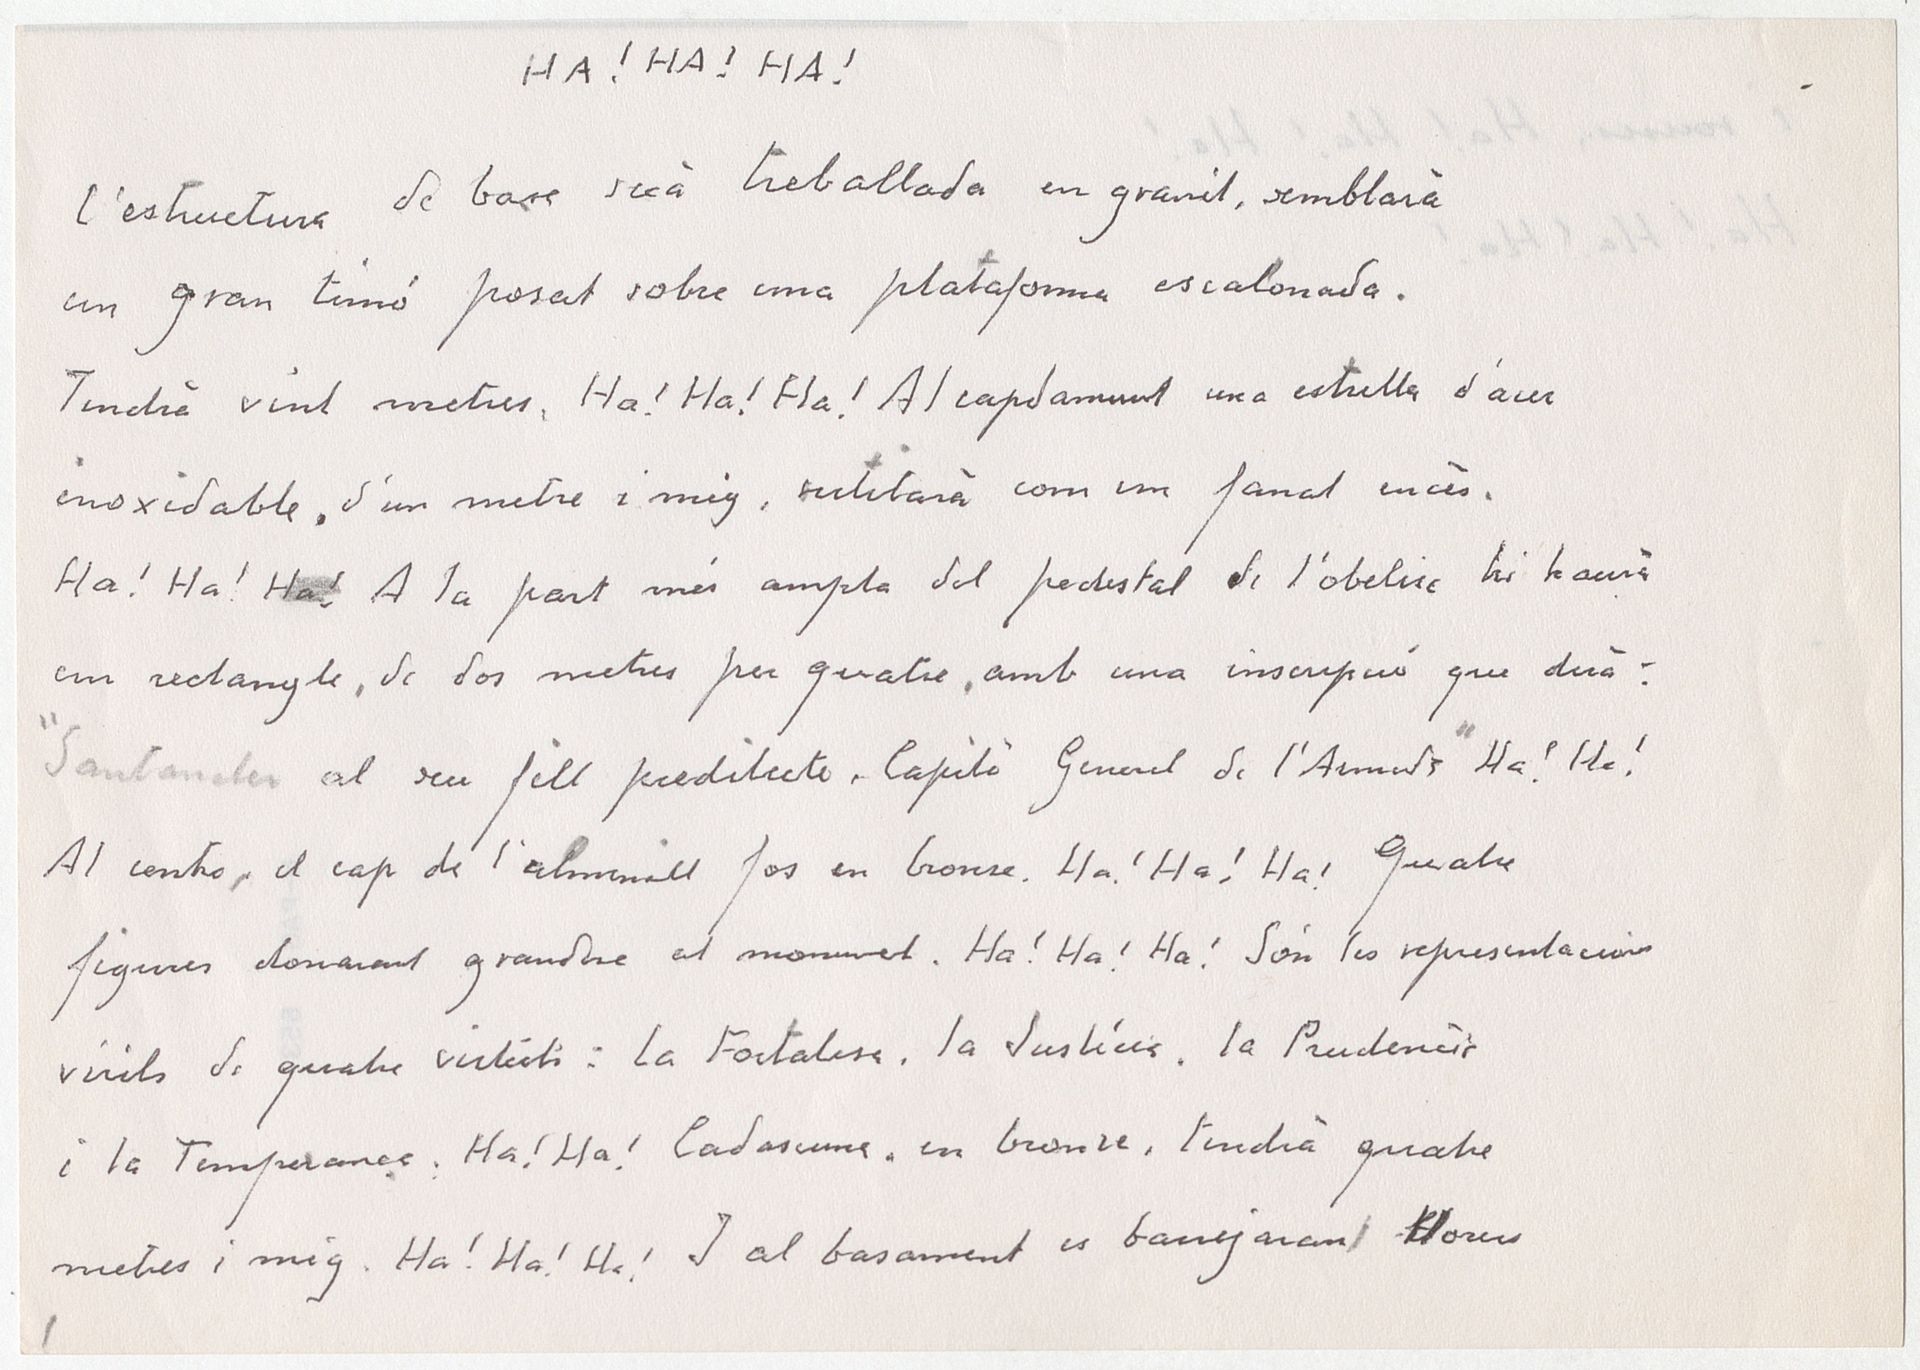 HA! HA! HA!
L'estructura de base serà treballada en granit, semblarà
un gran timó posat sobre una plataforma escalonada.
Tindrà vint metres. Ha! Ha! Ha! Al capdamunt una estrella d'acer
inoxidable, d'un metre i mig, rutilarà com un fanal encès.
Ha! Ha! Ha! A la part més ampla del pedestal de l'obelisc hi haurà
un rectangle, de dos metres per quatre, amb una inscripció que dirà:
"Santander al seu fill predilecte, Capità General de l'Armada" Ha! Ha!
Al centre, el cap de l'almirall fos en bronze. Ha! Ha! Ha! Quatre
figures donaran grandesa al monument. Ha! Ha! Ha! Són les representacions
virils de quatre virtuts: la Fortalesa, la Justícia, la Prudència
i la Temperança. Ha! Ha! Cadascuna, en bronze, tindrà quatre
metres i mig. Ha! Ha! Ha! I al basament es barrejaran llorers